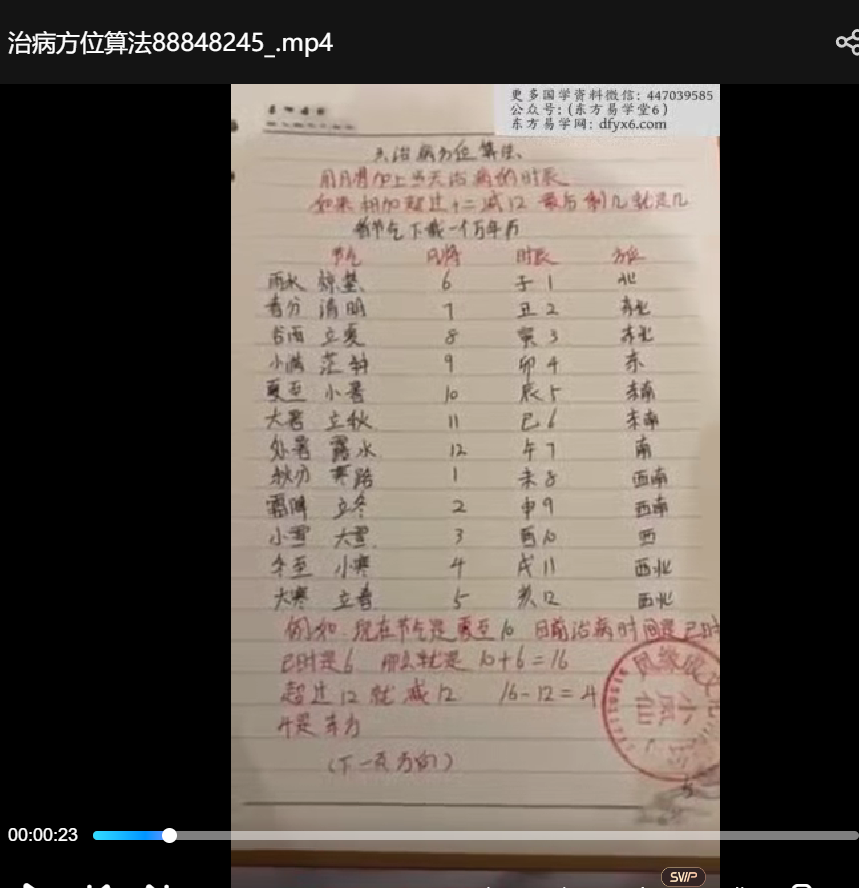 治病方位算法88848245_.mp4
更多国学资料微信：447039585
公众号：（东方易学堂6）
东方易学网：dfyx6.com
治病方位算法、
用月将加上当天治病的时辰
如果相加超过十二减12 最后剩几就是几
节气下载一个万年历
节气 月将 时辰 方位
雨水 惊蛰 6 子 1 北
春分 清明 7 丑 2 东北
谷雨 立夏 8 寅 3 东北
小满 芒种 9 卯 4 东
夏至 小暑 10 辰 5 东南
大暑 立秋 11 巳 6 东南
处暑 露水 12 午 7 南
秋分 寒路 1 未 8 西南
霜降 立冬 2 申 9 西南
小雪 大雪 3 酉 10 西
冬至 小寒 4 戌 11 西北
大寒 立春 5 亥 12 西北
例如 现在节气是夏至10 目前治病时间是巳时
巳时是6 那么就是 10+6=16
超过12就减12 16-12=4
4是东方
（下一页方向）
00:00:23
SVIP